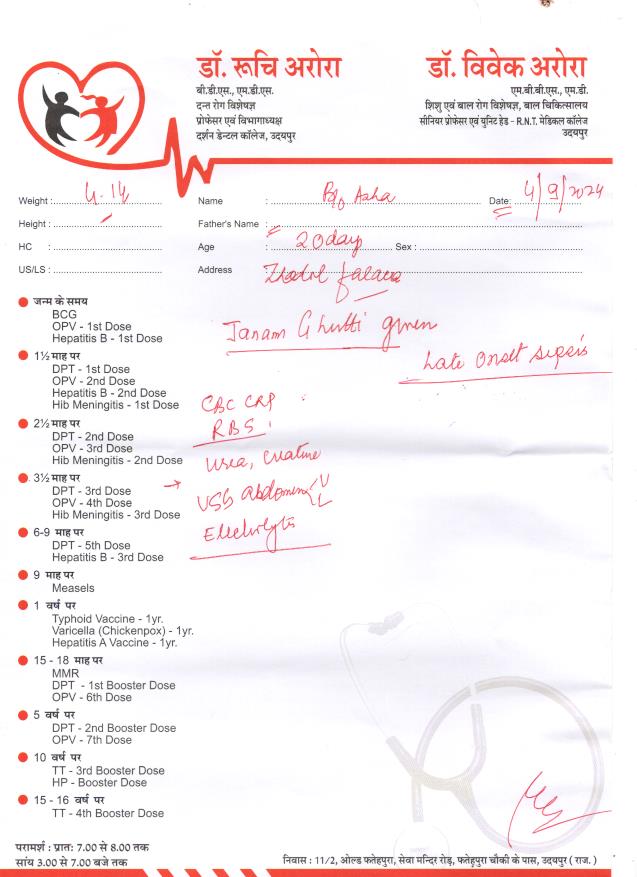 डॉ. रूचि अरोरा
बी.डी.एस., एम.डी.एस.
दन्त रोग विशेषज्ञ
प्रोफेसर एवं विभागाध्यक्ष
दर्शन डेन्टल कॉलेज, उदयपुर
डॉ. विवेक अरोरा
एम.बी.बी.एस., एम.डी.
शिशु एवं बाल रोग विशेषज्ञ, बाल चिकित्सालय
सीनियर प्रोफेसर एवं युनिट हेड - R.N.T. मेडिकल कॉलेज
उदयपुर
Weight : Name : B/o Asha Date: 4/9/2024
Height : Father's Name :
HC : Age : 20 day Sex :
US/LS : Address
Janam Ghutti given
Late onset sepsis
CBC CRP
RBS
Urea, Creatine
USG Abdomen
Electrolyts
जन्म के समय
BCG
OPV - 1st Dose
Hepatitis B - 1st Dose
1½ माह पर
DPT - 1st Dose
OPV - 2nd Dose
Hepatitis B - 2nd Dose
Hib Meningitis - 1st Dose
2½ माह पर
DPT - 2nd Dose
OPV - 3rd Dose
Hib Meningitis - 2nd Dose
3½ माह पर
DPT - 3rd Dose
OPV - 4th Dose
Hib Meningitis - 3rd Dose
6-9 माह पर
DPT - 5th Dose
Hepatitis B - 3rd Dose
9 माह पर
Measels
1 वर्ष पर
Typhoid Vaccine - 1yr.
Varicella (Chickenpox) - 1yr.
Hepatitis A Vaccine - 1yr.
15 - 18 माह पर
MMR
DPT - 1st Booster Dose
OPV - 6th Dose
5 वर्ष पर
DPT - 2nd Booster Dose
OPV - 7th Dose
10 वर्ष पर
TT - 3rd Booster Dose
HP - Booster Dose
15 - 16 वर्ष पर
TT - 4th Booster Dose
परामर्श : प्रातः 7.00 से 8.00 तक
सांय 3.00 से 7.00 बजे तक
निवास : 11/2, ओल्ड फतेहपुरा, सेवा मन्दिर रोड़, फतेहपुरा चौकी के पास, उदयपुर ( राज. )